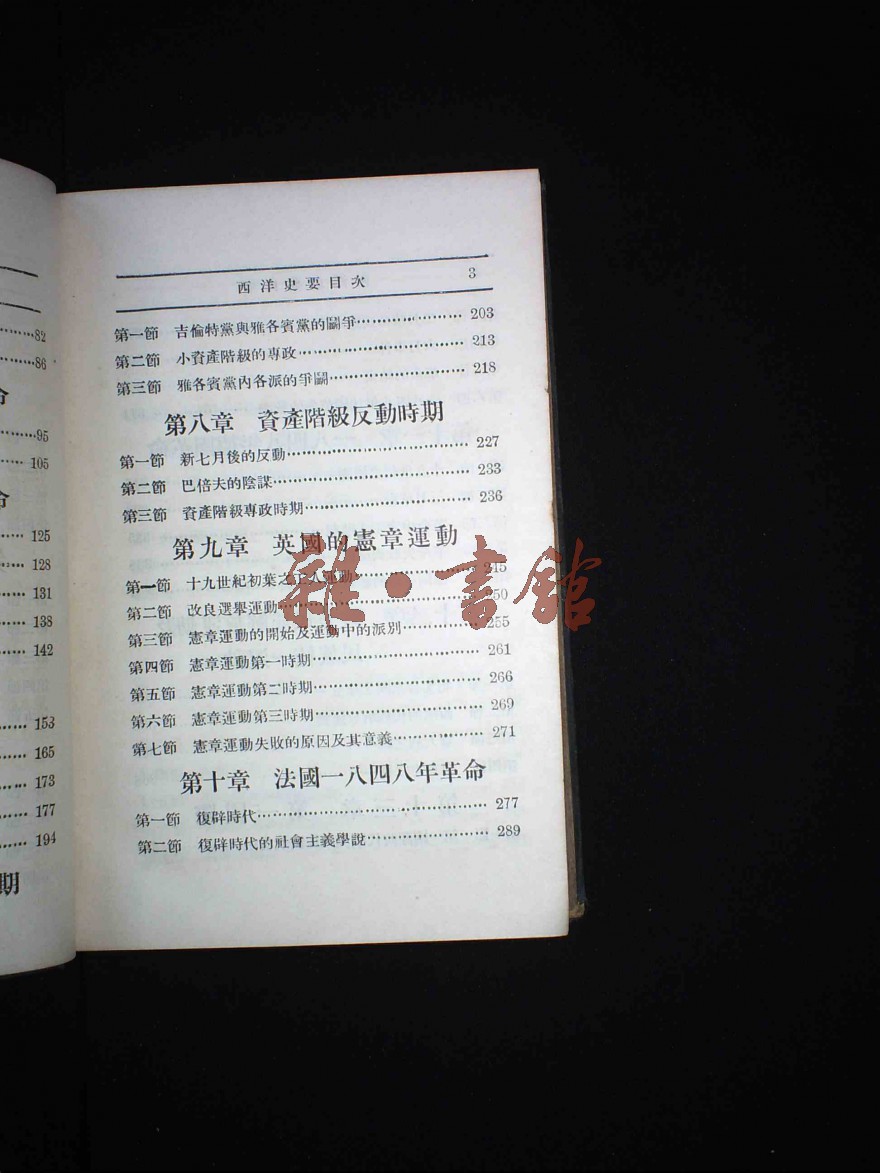 82
86
命
95
105
命
125
128
131
138
142
153
165
173
177
194
期
西洋史要目次 3
第一節 吉倫特黨與雅各賓黨的鬭爭 203
第二節 小資產階級的專政 213
第三節 雅各賓黨內各派的爭鬭 218
第八章 資產階級反動時期
第一節 新七月後的反動 227
第二節 巴倍夫的陰謀 233
第三節 資產階級專政時期 236
第九章 英國的憲章運動
第一節 十九世紀初葉之工人運動 245
第二節 改良選舉運動 250
第三節 憲章運動的開始及運動中的派別 255
第四節 憲章運動第一時期 261
第五節 憲章運動第二時期 266
第六節 憲章運動第三時期 269
第七節 憲章運動失敗的原因及其意義 271
第十章 法國一八四八年革命
第一節 復辟時代 277
第二節 復辟時代的社會主義學說 289
雜·書館